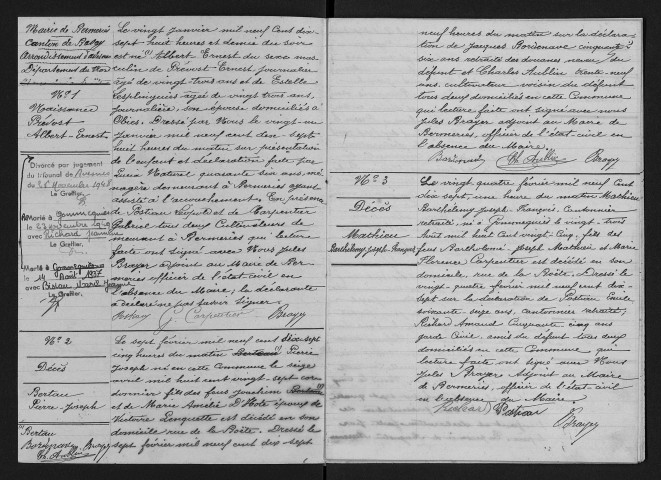 Mairie de Bermeries
Canton de Bavay
Département du Nord
N° 1
Naissance
Prévost
Albert Ernest
Divorcé par jugement
du tribunal de Avesnes
le
Le Greffier,
Marié à Gommegnies
le
avec Richard
Le Greffier,
Marié à
le 14 Août 1937
avec
Le Greffier,
N° 2
Décès
Bertau
Pierre Joseph
Bertau
Bordenave Bragy
Ch. Aublin
Le vingt janvier mil neuf Cent dix
sept huit heures et demie du soir
est né Albert Ernest du sexe mas
culin de Prévost Ernest journalier
âgé de vingt trois ans et de Estelle
Lesplingues âgée de vingt trois ans,
journalière, son épouse domiciliés à
Obies. Dressé par Nous le vingt-un
janvier mil neuf cent dix sept
huit heures du matin sur présentation
de l'enfant et déclaration faite par
Lucia Naturel quarante six ans, mé
nagère demeurant à Bermeries ayant
assisté à l'accouchement. En présence
de Postiau Léopold et de Carpentier
Gabriel tous deux Cultivateurs de
meurant à Bermeries qui lecture
faite ont signé avec Nous Jules
Bragy adjoint au Maire de Ber
meries officier de l'état civil en
l'absence du Maire, la déclarante
a déclaré ne pas savoir signer.
G. Carpentier Bragy
Le sept février mil neuf cent dix sept
cinq heures du matin Bertau Pierre
Joseph né en cette commune le seize
avril mil huit cent vingt-sept cor
donnier fils des feus Joachim
et de Marie Amélie D'Hote époux de
Victoire Lenquette est décédé en son
domicile rue de la Boëte. Dressé le
sept février mil neuf cent dix sept
neuf heures du matin sur la déclara
tion de Jacques Bordenave cinquante
six ans retraité des douanes neveu du
défunt et Charles Aublin trente neuf
ans, cultivateur voisin du défunt
tous deux domiciliés en cette Commune
qui lecture faite ont signé avec nous
Jules Bragy adjoint au Maire de
Bermeries, officier de l'état civil en
l'absence du Maire.
Bordenave Ch. Aublin Bragy
N° 3
Décès
Mathieu
Barthélemy Joseph François
Le vingt quatre février mil neuf cent
dix sept, une heure du matin Mathieu
Barthélemy Joseph François, Cantonnier
retraité, né à Gommegnies le vingt trois
Avril mil huit cent vingt-cinq, fils des
feus Bartholomé Joseph Mathieu et Marie
Florence Carpentier est décédé en son
domicile, rue de la Boëte. Dressé le
vingt quatre février mil neuf cent dix
sept sur la déclaration de Postiau Emile,
soixante onze ans, cantonnier retraité,
Richard Amand Cinquante cinq ans
garde Civil, amis du défunt tous deux
domiciliés en cette Commune qui
lecture faite ont signé avec Nous
Jules Bragy Adjoint au Maire
de Bermeries, officier de l'état civil
en l'absence du Maire.
Bragy